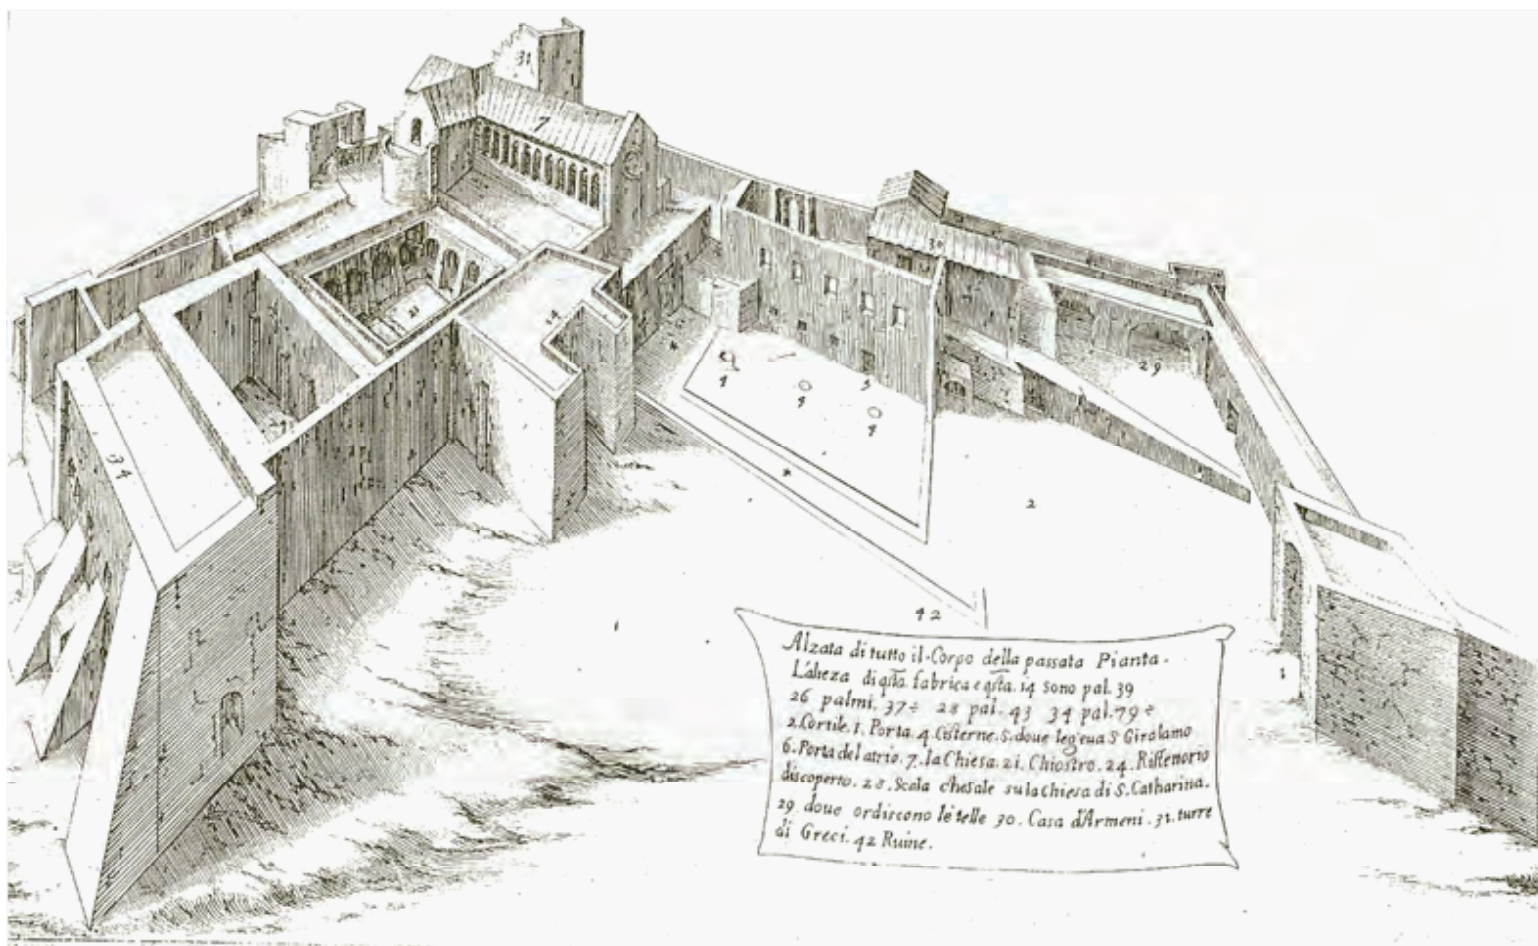 31
7
30
21
24
29
4
4
5
4
34
*
2
42
1
Alzata di tutto il Corpo della passata Pianta.
L'alteza di qsta fabrica e qsta. 14 sono pal. 39
26 palmi. 37 28 pal. 43 34 pal. 79
2. Cortile. 1. Porta. 4. Cisterne. 5. doue legeua S Girolamo
6. Porta del atrio. 7. la Chiesa. 21. Chiostro. 24. Riffettorio
discoperto. 28. Scala che sale su la Chiesa di S. Catharina.
29. doue ordiscono le telle 30. Casa d'Armeni. 31. turre
di Greci. 42 Ruine.
1